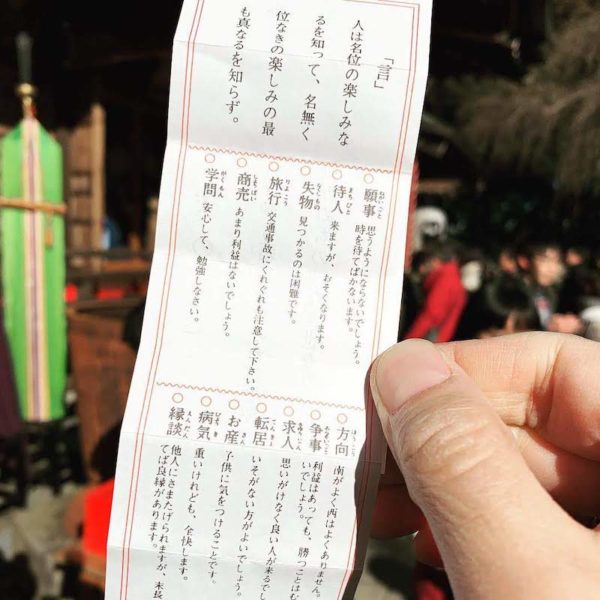 「言」
人は名位の楽しみな
るを知って、名無く
位なきの楽しみの最
も真なるを知らず。
○願事 思うようにならないでしょう。
時を待てばかないます。
○待人 来ますが、おそくなります。
○失物 見つかるのは困難です。
○旅行 交通事故にくれぐれも注意して下さい。
○商売 あまり利益はないでしょう。
○学問 安心して、勉強しなさい。
○方向 南がよく西はよくありません。
○争事 利益はあっても、勝つことはむ
いでしょう。
○求人 思いがけなく良い人が来るでし
○転居 いそがない方がよいでしょう。
○お産 子供に気をつけることです。
○病気 重いけれども、全快します。
○縁談 他人にさまたげられますが、末長
てば良縁があります。